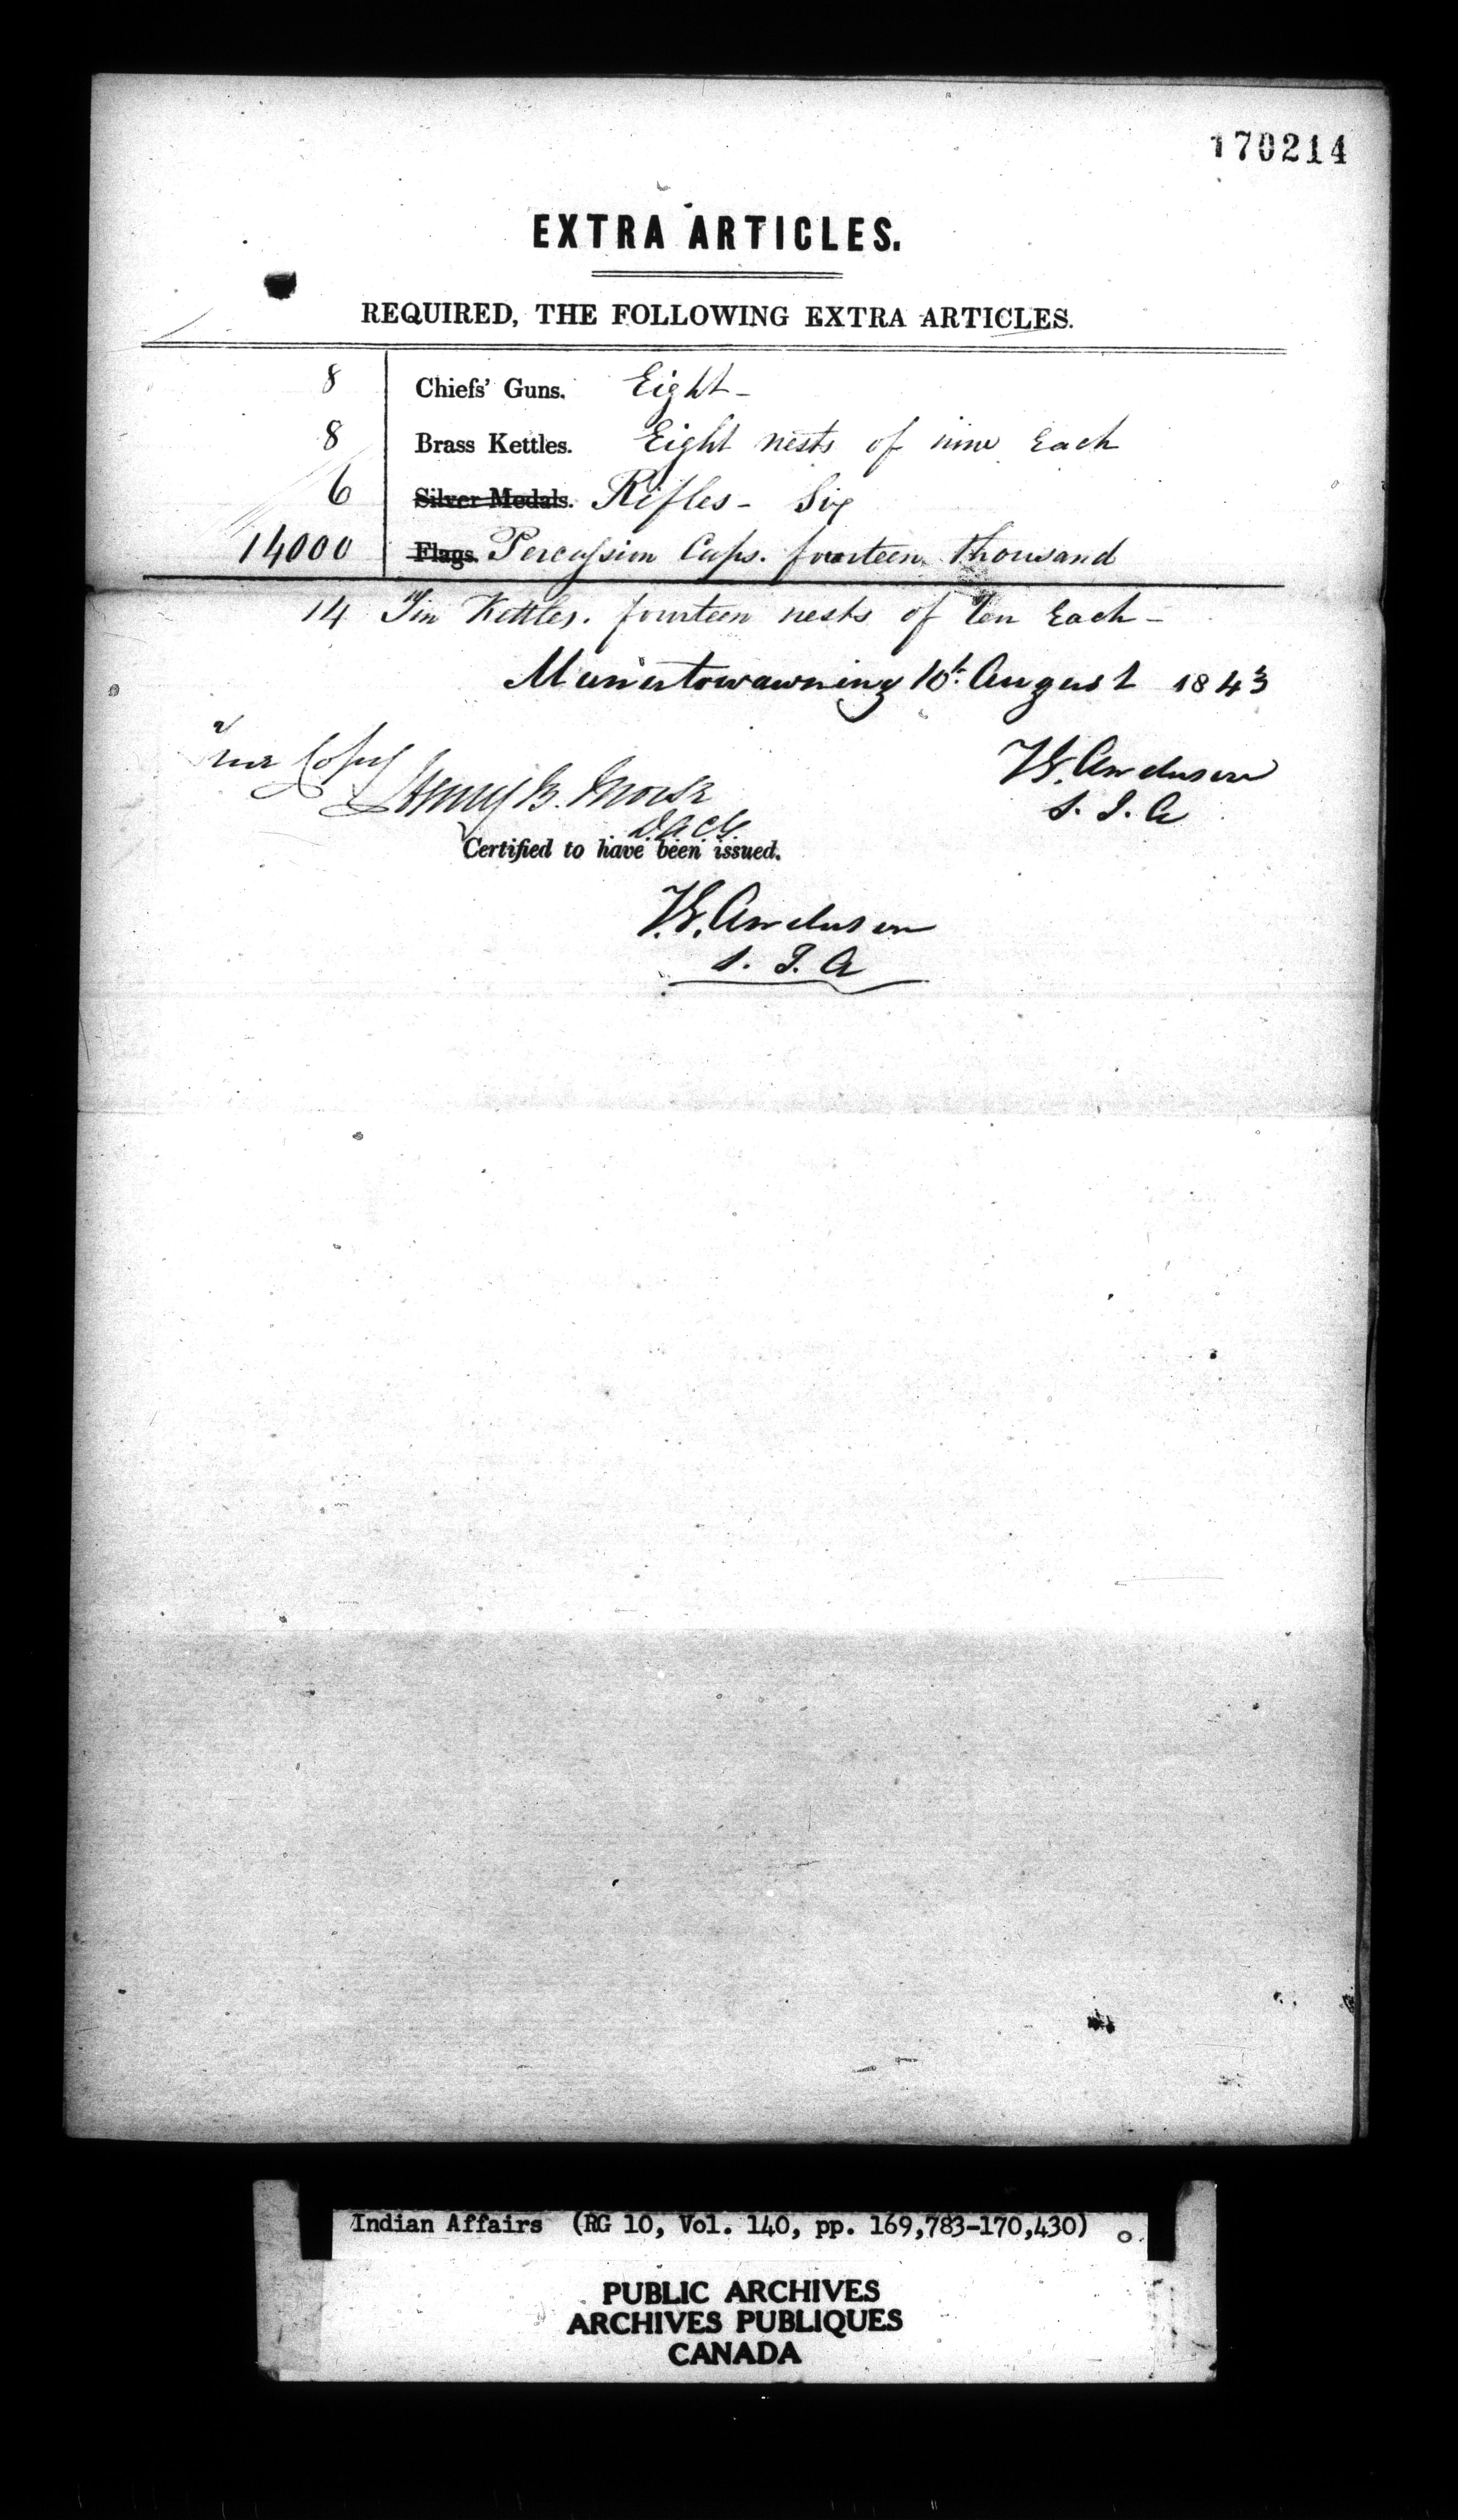 170214
EXTRA ARTICLES.
REQUIRED, THE FOLLOWING EXTRA ARTICLES.
8 Chiefs' Guns. Eight -
8 Brass Kettles. Eight nests of nine Each
6 Silver Medals. Rifles - Six
14000 Flags. Percussion Caps. fourteen thousand
14 Tin Kettles. fourteen nests of ten Each -
Manitowawning 10t. August 1843
True Copy
T.G. Anderson
S. I. A
Henry B.
DACG
Certified to have been issued.
T.G. Anderson
S. I. A
Indian Affairs (RG 10, Vol. 140, pp. 169,783-170,430)
PUBLIC ARCHIVES
ARCHIVES PUBLIQUES
CANADA